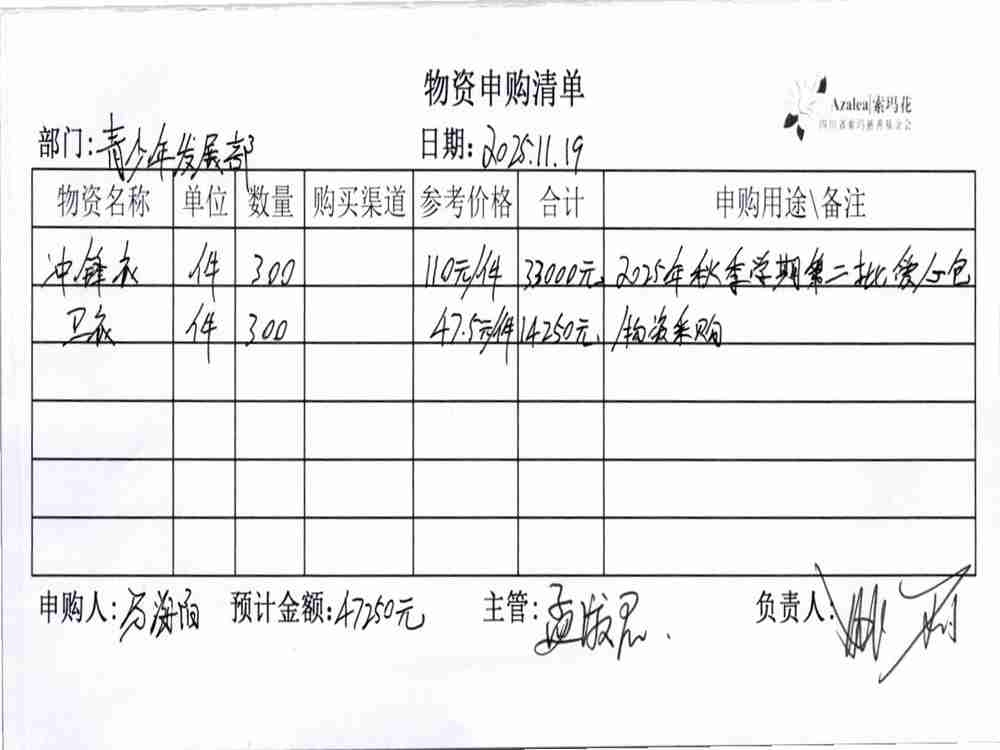 物资申购清单
Azalea|索玛花
四川省索玛慈善基金会
部门:青少年发展部 日期:2025.11.19
物资名称 单位 数量 购买渠道 参考价格 合计 申购用途\备注
冲锋衣 件 300 110元/件 33000元 2025年秋季学期第二批爱心包
卫衣 件 300 47.5元/件 14250元 物资采购
申购人:马海阳 预计金额:47250元 主管:孟 负责人: